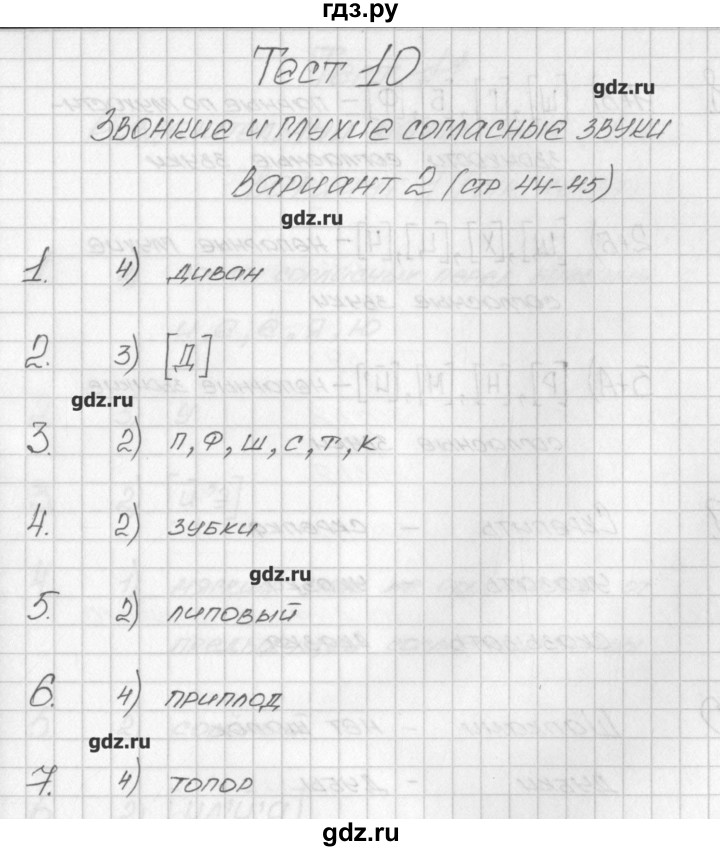 гдз.ру
Тест 10
gdz.ru
Звонкие и глухие согласные звуки
Вариант 2 (стр 44-45)
gdz.ru
1. 4) диван
2. 3) [Д]
gdz.ru
3. 2) п, ф, ш, с, т, к
4. 2) зубки
gdz.ru
5. 2) липовый
6. 4) приплод
gdz.ru
7. 4) топор
gdz.ru